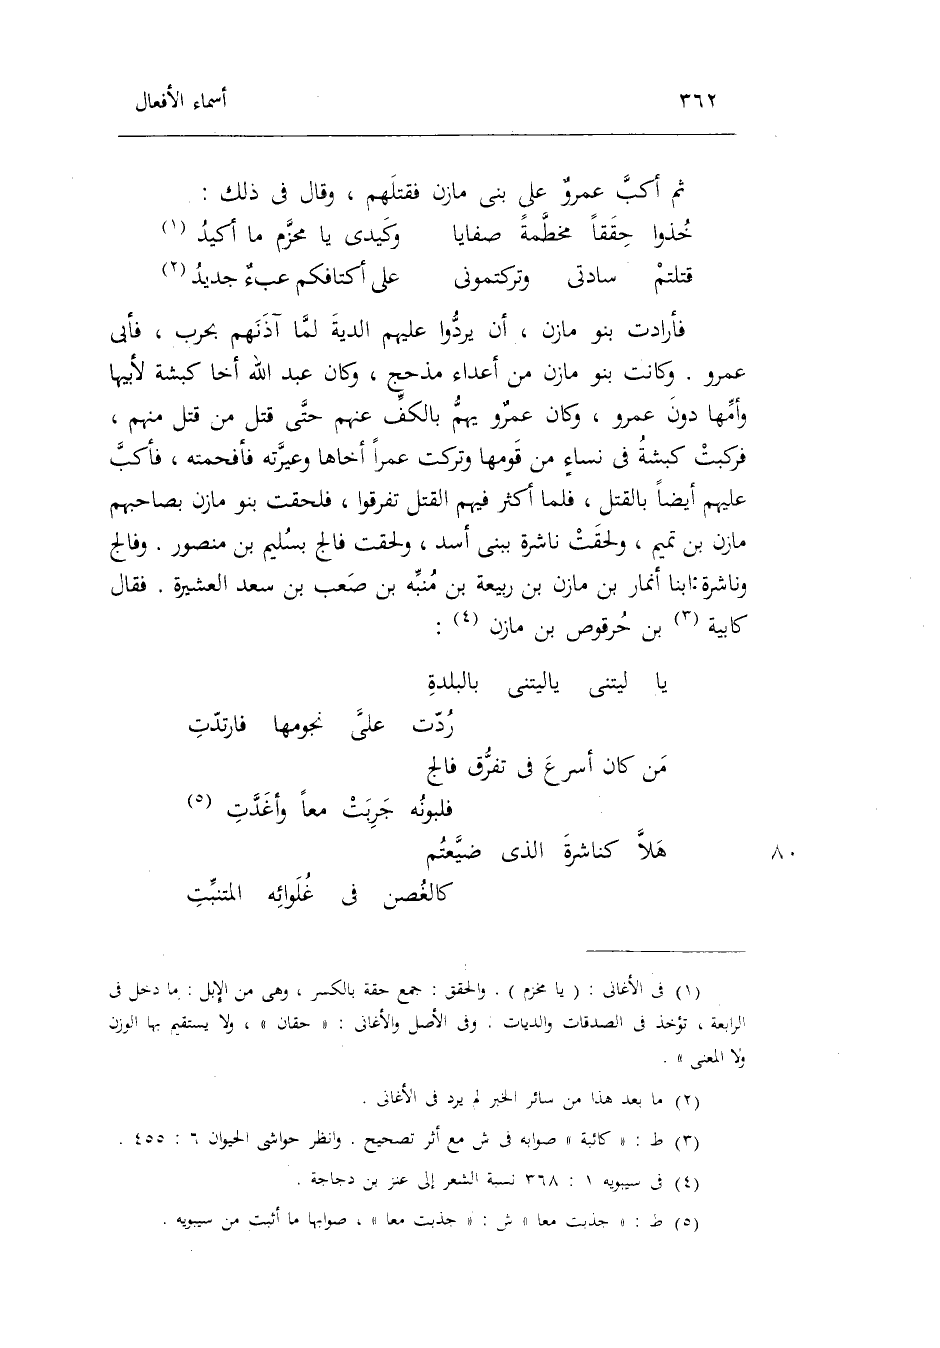 ٣٦٢ أسماء الأفعال
ثم أكبَّ عمروٌ على بنى مازن فقتلَهم ، وقال فى ذلك :
خُذوا حِقَقاً مخطَّمةً صفايا وكَيدى يا محزَّم ما أكيدُ (١)
قتلتمْ سادتى وتركتمونى على أكتافكم عبءٌ جديدُ (٢)
فأرادت بنو مازن ، أن يردُّوا عليهم الديةَ لمَّا آذَنَهم بحرب ، فأبى
عمرو . وكانت بنو مازن من أعداء مذحج ، وكان عبد الله أخا كبشة لأبيها
وأمِّها دونَ عمرو ، وكان عمرٌو يهمُّ بالكفِّ عنهم حتَّى قتل من قتل منهم ،
فركبتْ كبشةُ فى نساءٍ من قَومها وتركت عمراً أخاها وعيرَّته فأفحمته ، فأكبَّ
عليهم أيضاً بالقتل ، فلما أكثر فيهم القتل تفرقوا ، فلحقت بنو مازن بصاحبهم
مازن بن تميم ، ولحقَتْ ناشرة ببنى أسد ، ولحقت فالج بسُليم بن منصور . وفالج
وناشرة : ابنا أنمار بن مازن بن ربيعة بن مُنبِّه بن صَعب بن سعد العشيرة . فقال
كابية (٣) بن حُرقوص بن مازن (٤) :
يا ليتنى ياليتنى بالبلدةِ
رُدّت علىَّ نجومها فارتدّتِ
مَن كان أسرعَ فى تفرُّق فالج
فلبونُه جَرِبَتْ معاً وأغَدَّتِ (٥)
هَلاَّ كناشرةَ الذى ضيَّعتُم ٨٠
كالغُصن فى غُلَوائِه المتنبِّتِ
(١) فى الأغانى : ( يا مخزم ) . والحقق : جمع حقة بالكسر ، وهى من الإبل : ما دخل فى
الرابعة ، تؤخذ فى الصدقات والديات . وفى الأصل والأغانى : « حقان » ، ولا يستقيم بها الوزن
ولا المعنى » .
(٢) ما بعد هذا من سائر الخبر لم يرد فى الأغانى .
(٣) ط : « كائبة » صوابه فى ش مع أثر تصحيح . وانظر حواشى الحيوان ٦ : ٤٥٥ .
(٤) فى سيبويه ١ : ٣٦٨ نسبة الشعر إلى عنز بن دجاجة .
(٥) ط : « جذبت معا » ش : « جذبت معا » ، صوابها ما أثبت من سيبويه .